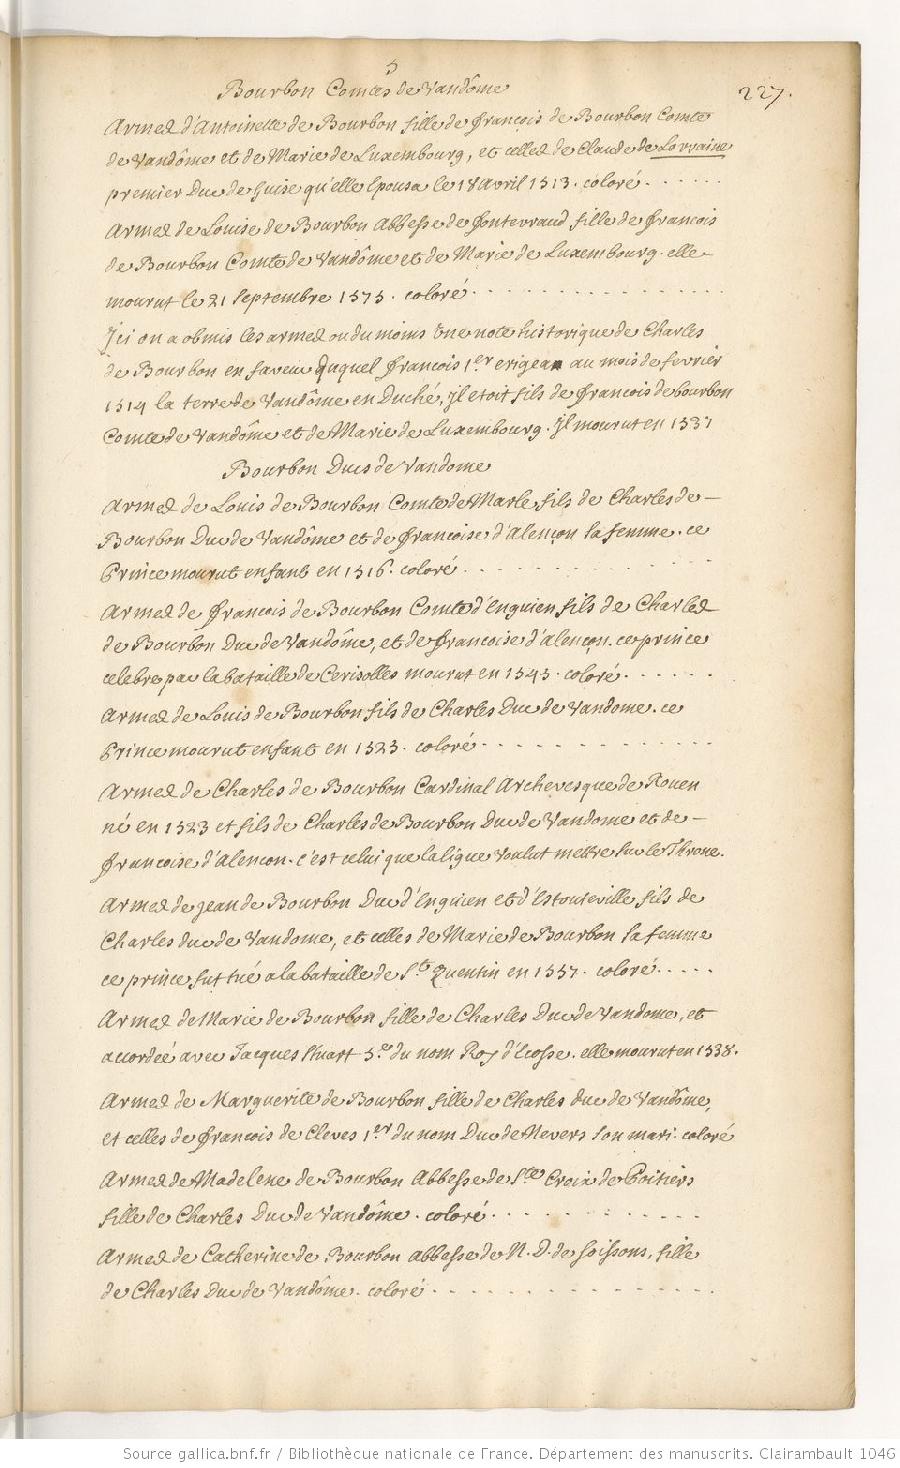 5
227.
Bourbon Comtes de Vandôme
Armes d'Antoinette de Bourbon fille de françois de Bourbon Comte
de Vandôme et de Marie de Luxembourg, et celles de Claude de Lorraine
premier Duc de Guise qu'elle Epousa le 18 avril 1513. coloré . . . . . .
Armes de Louise de Bourbon Abbesse de fontevraud fille de françois
de Bourbon Comte de Vandôme et de Marie de Luxembourg. elle
mourut le 21 Septembre 1575. coloré . . . . . . . . . . . . . . .
Ici on a obmis les armes ou du moins une note historique de Charles
de Bourbon en faveur duquel françois 1er erigea au mois de fevrier
1514 la terre de Vandôme en Duché, il etoit fils de françois de bourbon
Comte de Vandôme et de Marie de Luxembourg. Il mourut en 1537
Bourbon Ducs de Vandome
Armes de Louis de Bourbon Comte de Marle fils de Charles de —
Bourbon Duc de Vandôme et de françoise d'alençon sa femme. ce
Prince mourut enfant en 1516. coloré . . . . . . . . . . . . . .
Armes de françois de Bourbon Comte d'enguien fils de Charles
de Bourbon Duc de Vandôme, et de françoise d'alençon. ce prince
celebre par la bataille de Cerisolles mourut en 1545. coloré . . . . . .
Armes de Louis de Bourbon fils de Charles Duc de Vandome. ce
Prince mourut enfant en 1523. coloré . . . . . . . . . . . . .
Armes de Charles de Bourbon Cardinal Archevesque de Rouen
né en 1523 et fils de Charles de Bourbon Duc de Vandome et de —
françoise d'alençon. c'est celui que la ligue voulut mettre sur le Throne.
Armes de jean de Bourbon Duc d'Enguien et d'Estouteville fils de
Charles duc de Vandome, et celles de Marie de Bourbon sa femme
ce prince fut tué a la bataille de St Quentin en 1557. coloré . . . . .
Armes de Marie de Bourbon fille de Charles Duc de Vandome, et
accordée avec Jacques Stuart 5e du nom Roy d'Ecosse. elle mourut en 1538.
Armes de Marguerite de Bourbon fille de Charles duc de Vandôme,
et celles de françois de Cleves 1er du nom Duc de Nevers son mari. coloré
Armes de Madelene de Bourbon Abbesse de Ste Croix de Poitiers
fille de Charles Duc de Vandôme. coloré . . . . . . . . . . . .
Armes de Catherine de Bourbon abbesse de N. D. de soissons, fille
de Charles Duc de Vandôme. coloré . . . . . . . . . . . . . . .
Source gallica.bnf.fr / Bibliothèque nationale de France. Département des manuscrits. Clairambault 1046